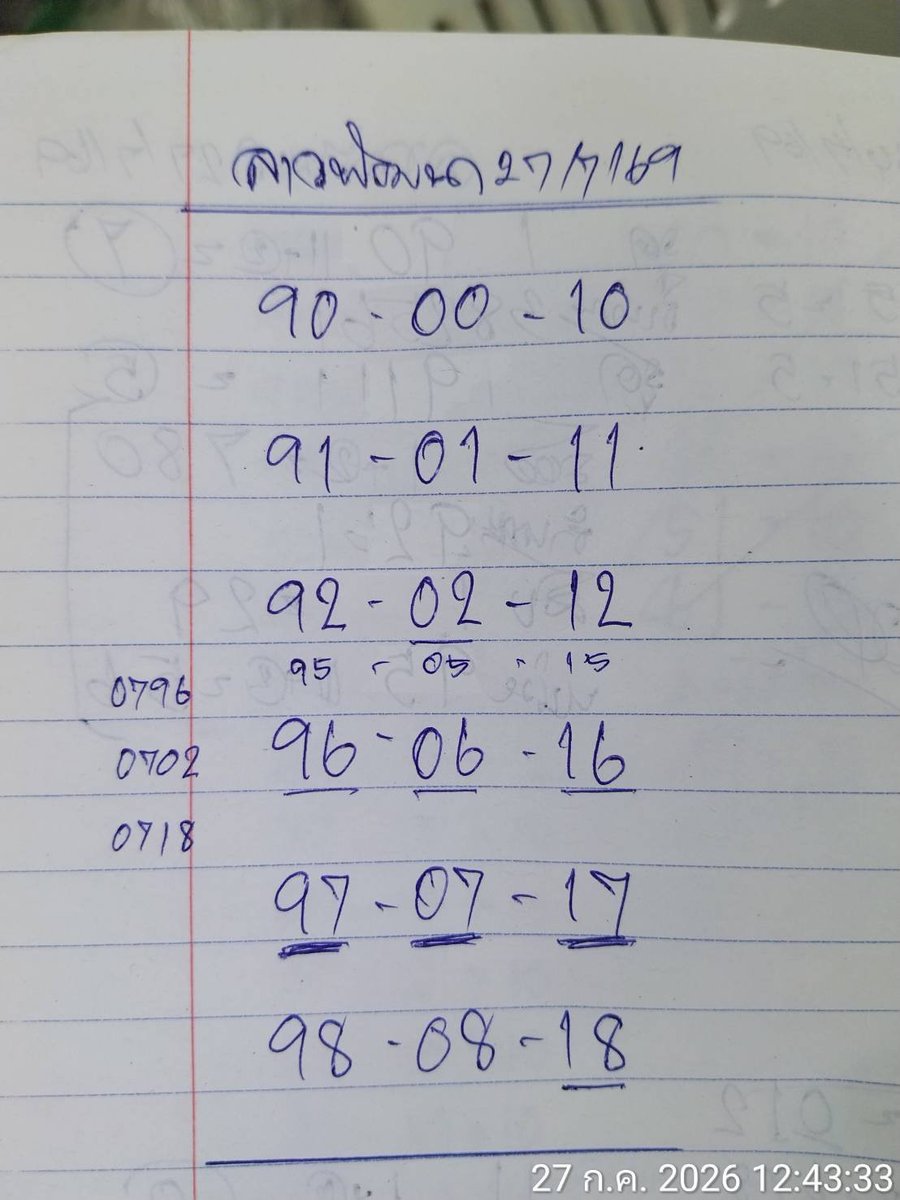 ลาวพัฒนา 27/7/69
90 - 00 - 10
91 - 01 - 11
92 - 02 - 12
95 - 05 - 15
0796
96 - 06 - 16
0702
0718
97 - 07 - 17
98 - 08 - 18
27 ก.ค. 2026 12:43:33